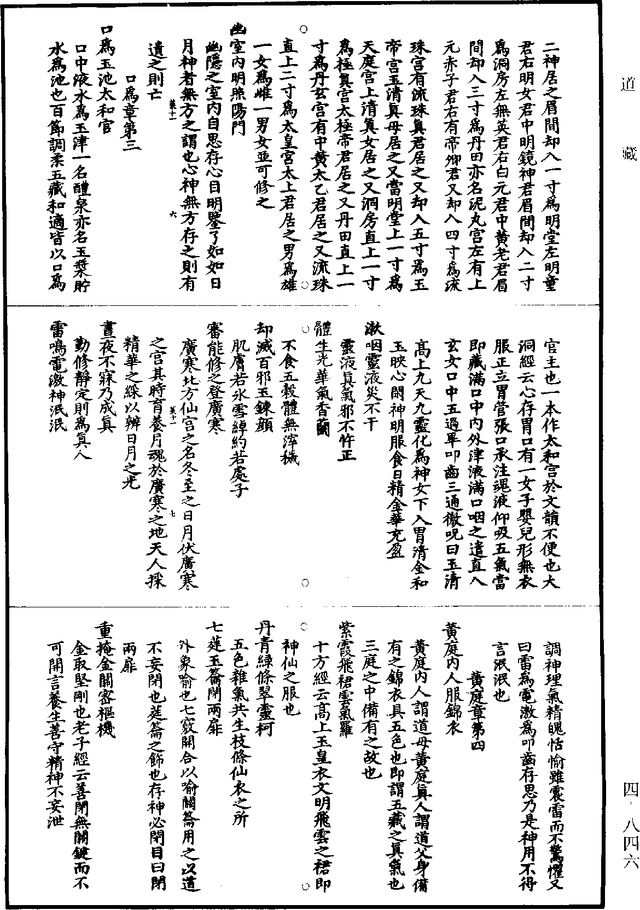 道藏
二神居之眉間却入一寸為明堂左明童
君右明女君中明鏡神君眉間却入二寸
為洞房左無英君右白元君中黃老君眉
間却入三寸為丹田亦名泥丸宮左有上
元赤子君右有帝卿君又却入四寸為流
珠宮有流珠真君居之又却入五寸為玉
帝宮玉清真母居之又當明堂上一寸為
天庭宮上清真女居之又洞房直上一寸
為極真宮太極帝君居之又丹田直上一
寸為丹玄宮有中黃太乙君居之又流珠
直上二寸為太皇宮太上君居之男為雄
一女為雌一男女並可修之
幽室內明照陽門
幽隱之室內自思存心目明鑒了如如日
月神者無方之謂也心神無方存之則有
遺之則亡
口為章第三
口為玉池太和官
口中液水為玉津一名醴泉亦名玉漿貯
水為池也百節調柔五藏和適皆以口為
官主也一本作太和宮於文韻不便也大
洞經云心存胃口有一女子嬰兒形無衣
服正立胃管張口承注魂液仰吸五氣當
即藏滿口中內外津液滿口咽之遣直入
玄女口中五過畢叩齒三通微呪曰玉清
高上九天九靈化為神女下入胃清金和
玉映心開神明服食日精金華充盈
漱咽靈液災不干
靈液真氣邪不忤正
體生光華氣香蘭
不食五穀體無滓穢
却滅百邪玉鍊顏
肌膚若氷雪綽約若處子
審能修之登廣寒
廣寒北方仙宮之名冬至之日月伏廣寒
之宮其時育養月魂於廣寒之地天人採
精華之綵以辨日月之光
晝夜不寐乃成真
勤修靜定則為真人
雷鳴電激神泯泯
調神理氣精魄恬愉雖震雷而不驚懼又
曰雷為電激為叩齒存思乃是神用不得
言泯泯也
黃庭章第四
黃庭內人服錦衣
黃庭內人謂道母黃庭真人謂道父身備
有之錦衣具五色也即謂五藏之真氣也
三庭之中備有之故也
紫霞飛裙雲氣羅
十方經云高上玉皇衣文明飛雲之裙即
神仙之服也
丹青綠條翠靈柯
五色雜氣共生枝條仙衣之所
七蕤玉籥閉兩扉
外象喻也七竅開合以喻關籥用之以道
不妄閉也蕤籥之飾也存神必閉目曰閉
兩扉
重掩金關密樞機
金取堅剛也老子經云善閉無關鍵而不
可開言養生善守精神不妄泄
四·八四六